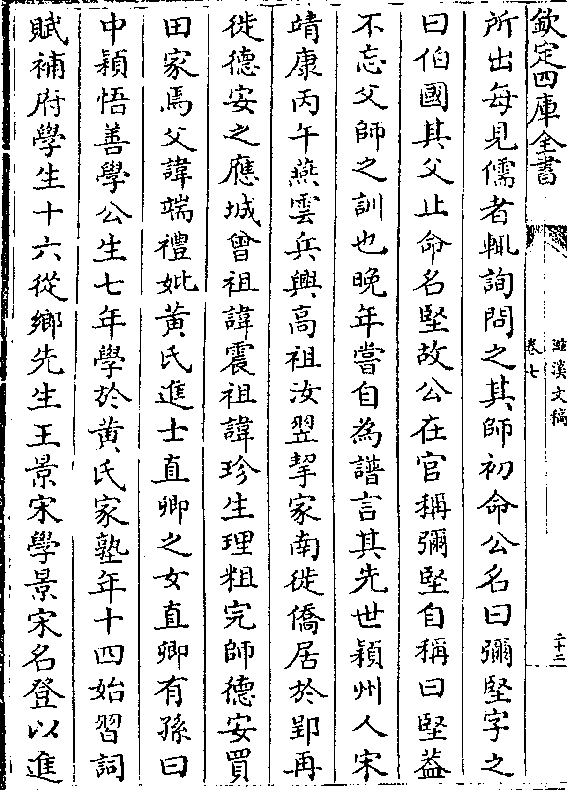 欽定四庫全書
滋溪文稿
卷七
二十三
所出每見儒者輒詢問之其師初命公名曰彌堅字之
曰伯國其父止命名堅故公在官稱彌堅自稱曰堅葢
不忘父師之訓也晚年嘗自為譜言其先世潁州人宋
靖康丙午燕雲兵興高祖汝翌挈家南徙僑居於郢再
徙德安之應城曾祖諱震祖諱珍生理粗完師德安買
田家焉父諱端禮妣黃氏進士直卿之女直卿有孫曰
中穎悟善學公生七年學於黃氏家塾年十四始習詞
賦補府學生十六從鄉先生王景宋學景宋名登以進